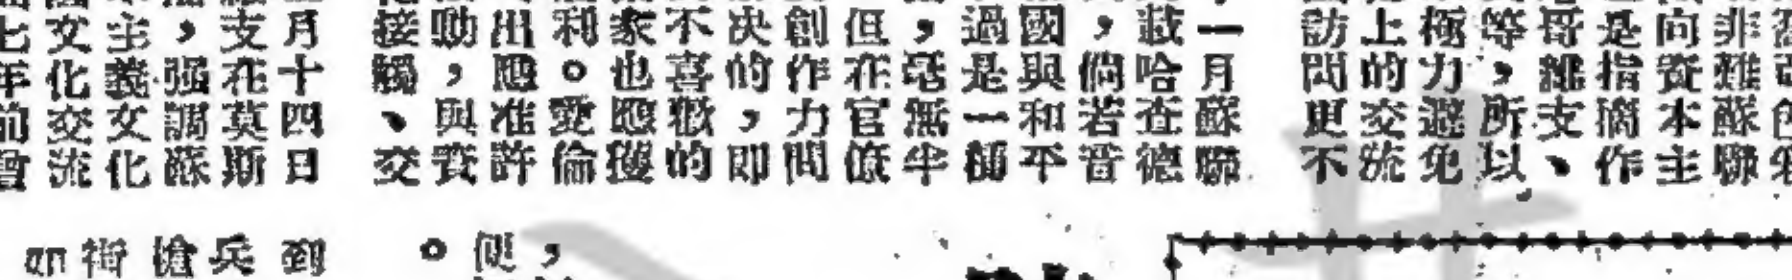 非難蘇聯
向資本主
是指摘作
哥雜支、
等，所以
極力避免
上的交流
訪問更不
一月蘇聯
載哈查德
，倘若音
國與和平
過是一種
，毫無半
但在官僚
創作力問
决的，即
不喜歡的
家也應獲
利。愛倫
出應准許
動，與資
接觸、交
月十四日
支在莫斯
，强調蘇
主義文化
文化交流
七年前曾
，
便
。
到
兵
槍
街